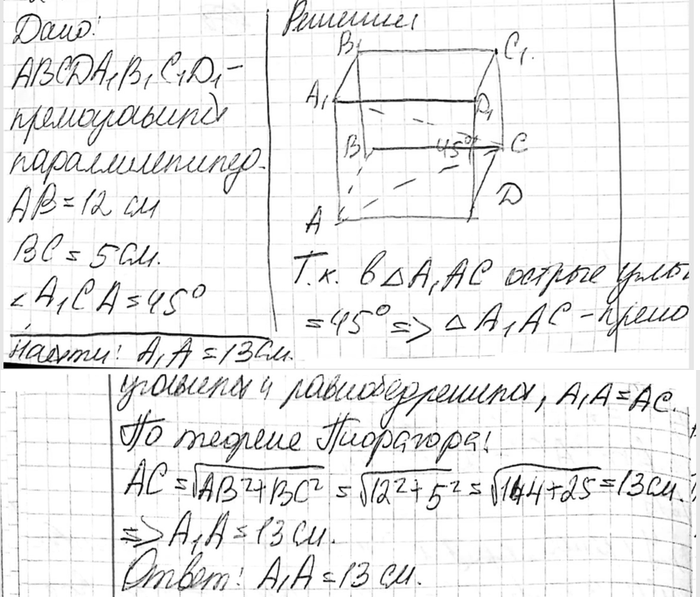 Дано:
ABCDA₁B₁C₁D₁ –
прямоугольный
параллилепипед.
AB = 12 см
BC = 5 см.
∠A₁CA = 45°
Найти: A₁A = 13 см.
Решение:
B₁
C₁.
A₁
D₁
B
45°
C
A
D
Т.к. в △A₁AC острые углы
= 45° => △A₁AC – прямо
угольный и равнобедренный, A₁A = AC.
По теореме Пифагора:
AC = √AB² + BC² = √12² + 5² = √144 + 25 = 13 см.
=> A₁A = 13 см.
Ответ: A₁A = 13 см.